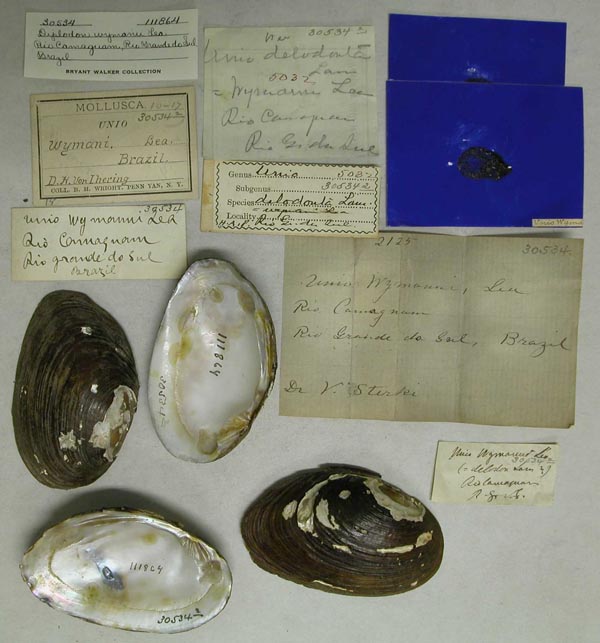 30534 111864
Diplodon wymani Lea
Rio Camaquam, Rio Grande do Sul
Brazil
BRYANT WALKER COLLECTION
MOLLUSCA. 10-17
30534
UNIO
Wymani. Lea.
Brazil.
D. H. Von Ihering
COLL. B. H. WRIGHT, PENN YAN, N. Y.
Unio Wymanni Lea
30534
Rio Camaquam
Rio grande do Sul
Brazil
30534
Unio delodonta
Lam
5037
= Wymanni Lea
Rio Camaquam
Rio G. do Sul
Genus Unio 5037
Subgenus 30534
Species delodonta Lam.
Locality
Rio G. do Sul
Unio Wyma
2125 30534
Unio Wymanni, Lea
Rio Camaquam
Rio Grande do Sul, Brazil
Dr V. Sterki
Unio Wymanni Lea
30534
(= delodon Lam
Rio Camaquam
111864
30534
111864
30534